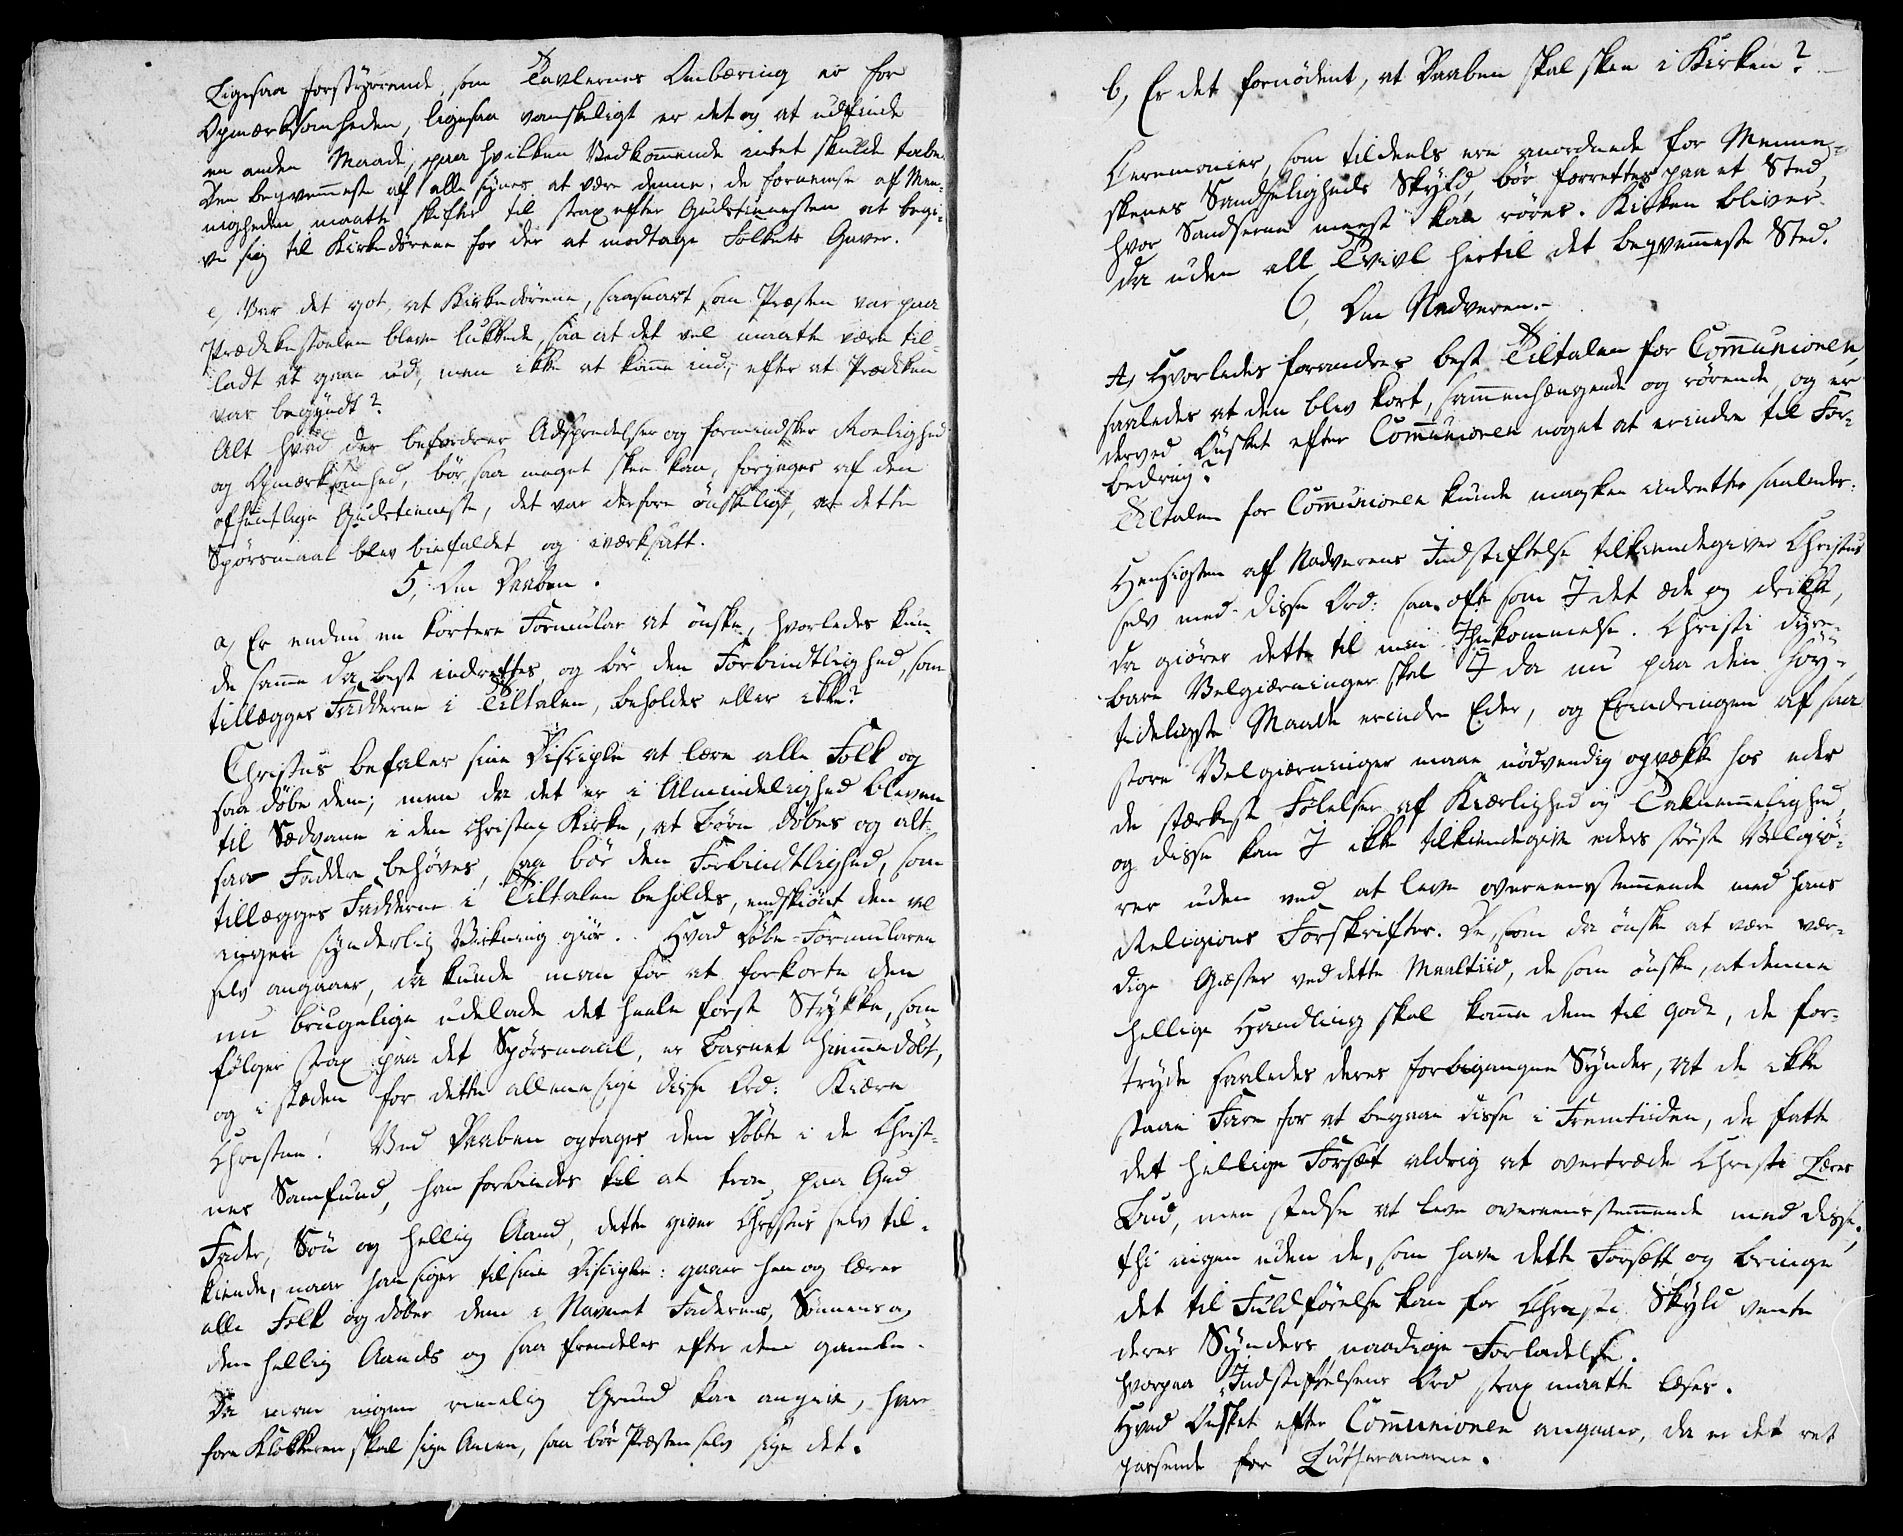 Ligesaa forstyrrende, som Tavlernes Ombæring er for
Opmærksomheden, ligesaa vanskeligt er det og at udfinde
en anden Maade, paa hvilken Vedkommende intet skulde tabe.
Den beqvemmeste af alle synes at være denne, de fornemste af Men-
nigheden maatte skiftes til strax efter Gudstienesten at begi-
ve sig til Kirkedørene for der at modtage Folkets Gaver.
e, Var det got, at Kirkedørene, saasnart som Præsten var paa
Prædikestoelen bleve lukkede, saa at det vel maatte være til-
ladt at gaae ud, men ikke at komme ind, efter at Prædiken
var begyndt?
Alt hvad der befordrer Adspredelse og formindsker Roelighed
og Opmærksomhed, bør saa meget skee kan, forjages af den
offentlige Gudstieneste, det var derfore ønskeligt, at dette
Spørsmaal blev biefaldet og iværksatt.
5, Om Daaben.
a, Er endnu en kortere Formular at ønske, hvorledes kun-
de samme da best indrettes, og bør den Forbindtlighed, som
tillægges Fadderne i Tiltalen, beholdes eller ikke?
Christus befaler sine Disciple at lære alle Folk og
saa døbe dem; men da det er i Almindelighed bleven
til Sædvane i den christne Kirke, at Børn døbes og alt-
saa Faddere behøves, saa bør den Forbindtlighed, som
tillægges Fadderne i Tiltalen beholdes, endskiønt den vel
ingen synderlig Virkning giør. Hvad Døbe-Formularen
selv angaaer, da kunde man for at forkorte den
nu brugelige udelade det heele første Stykke, som
følger strax paa det Spørsmaal, er Barnet hiemmedøbt,
og i stæden for dette allene sige disse Ord: Kiære
Christne! Ved Daaben optages den Døbte i de Christ-
nes Samfund, han forbindes til at troe paa Gud
Fader, Søn og hellig Aand, dette giver Christus selv til-
kiende, naar han siger til sine Disciple: gaaer hen og lærer
alle Folk og døber dem i Navnet Faderens, Sønnens og
den hellig Aands og saa fremdeles efter den gamle.
Da man ingen rimelig Grund kan angive, hvor-
fore Klokkeren skal sige Amen, saa bør Præsten selv sige det.
b, Er det fornødent, at Daaben skal skee i Kirken?
Ceremonier, som tildeels ere anordnede for Menne-
skenes Sandseligheds Skyld, bør forrettes paa et Sted,
hvor Sandserne meest kan røres. Kirken bliver
da uden all Tvivl hertil det beqvemmeste Sted.
6, Om Nadveren.
A, Hvorledes forandres best Tiltalen for Communionen,
saaledes at den blev kort, sammenhængende og rørende, og er
derved Ønsket efter Communionen noget at erindre til For-
bedring?
Tiltalen for Communionen kunde maaskee indrettes saaledes:
Hensigten af Nadverens Indstiftelse tilkiendegiver Christus
selv med disse Ord: saa ofte som I det æde og drikke,
da giører dette til min Ihukommelse. Christi dyre-
bare Velgierninger skal I da nu paa den høy-
tideligste Maade erindre Eder, og Erindringen af saa
store Velgierninger maae nødvendig opvække hos eder
de stærkeste Følelser af Kierlighed og Taknemmelighed,
og disse kan I ikke tilkiendegive eders største Velgiø-
rer uden ved at leve overeensstemmende med hans
Religions Forskrifter. De, som da ønske at være vær-
dige Giæster ved dette Maaltiid, de som ønske, at denne
hellige Handling skal komme dem til gode, de for-
tryde saaledes deres forbigangne Synder, at de ikke
staae Fare for at begaae disse i Fremtiiden, de fatte
det hellige Forsæt aldrig at overtræde Christi Læres
Bud, men stedse at leve overeensstemmende med disse,
thi ingen uden de, som have dette Forsætt og bringe
det til Fuldførelse kan for Christi Skyld vente
deres Synders naadige Forladelse.
Hvorpaa Indstiftelsens Ord strax maatte læses.
Hvad Ønsket efter Communionen angaaer, da er det ret
passende for Lutheranerne.